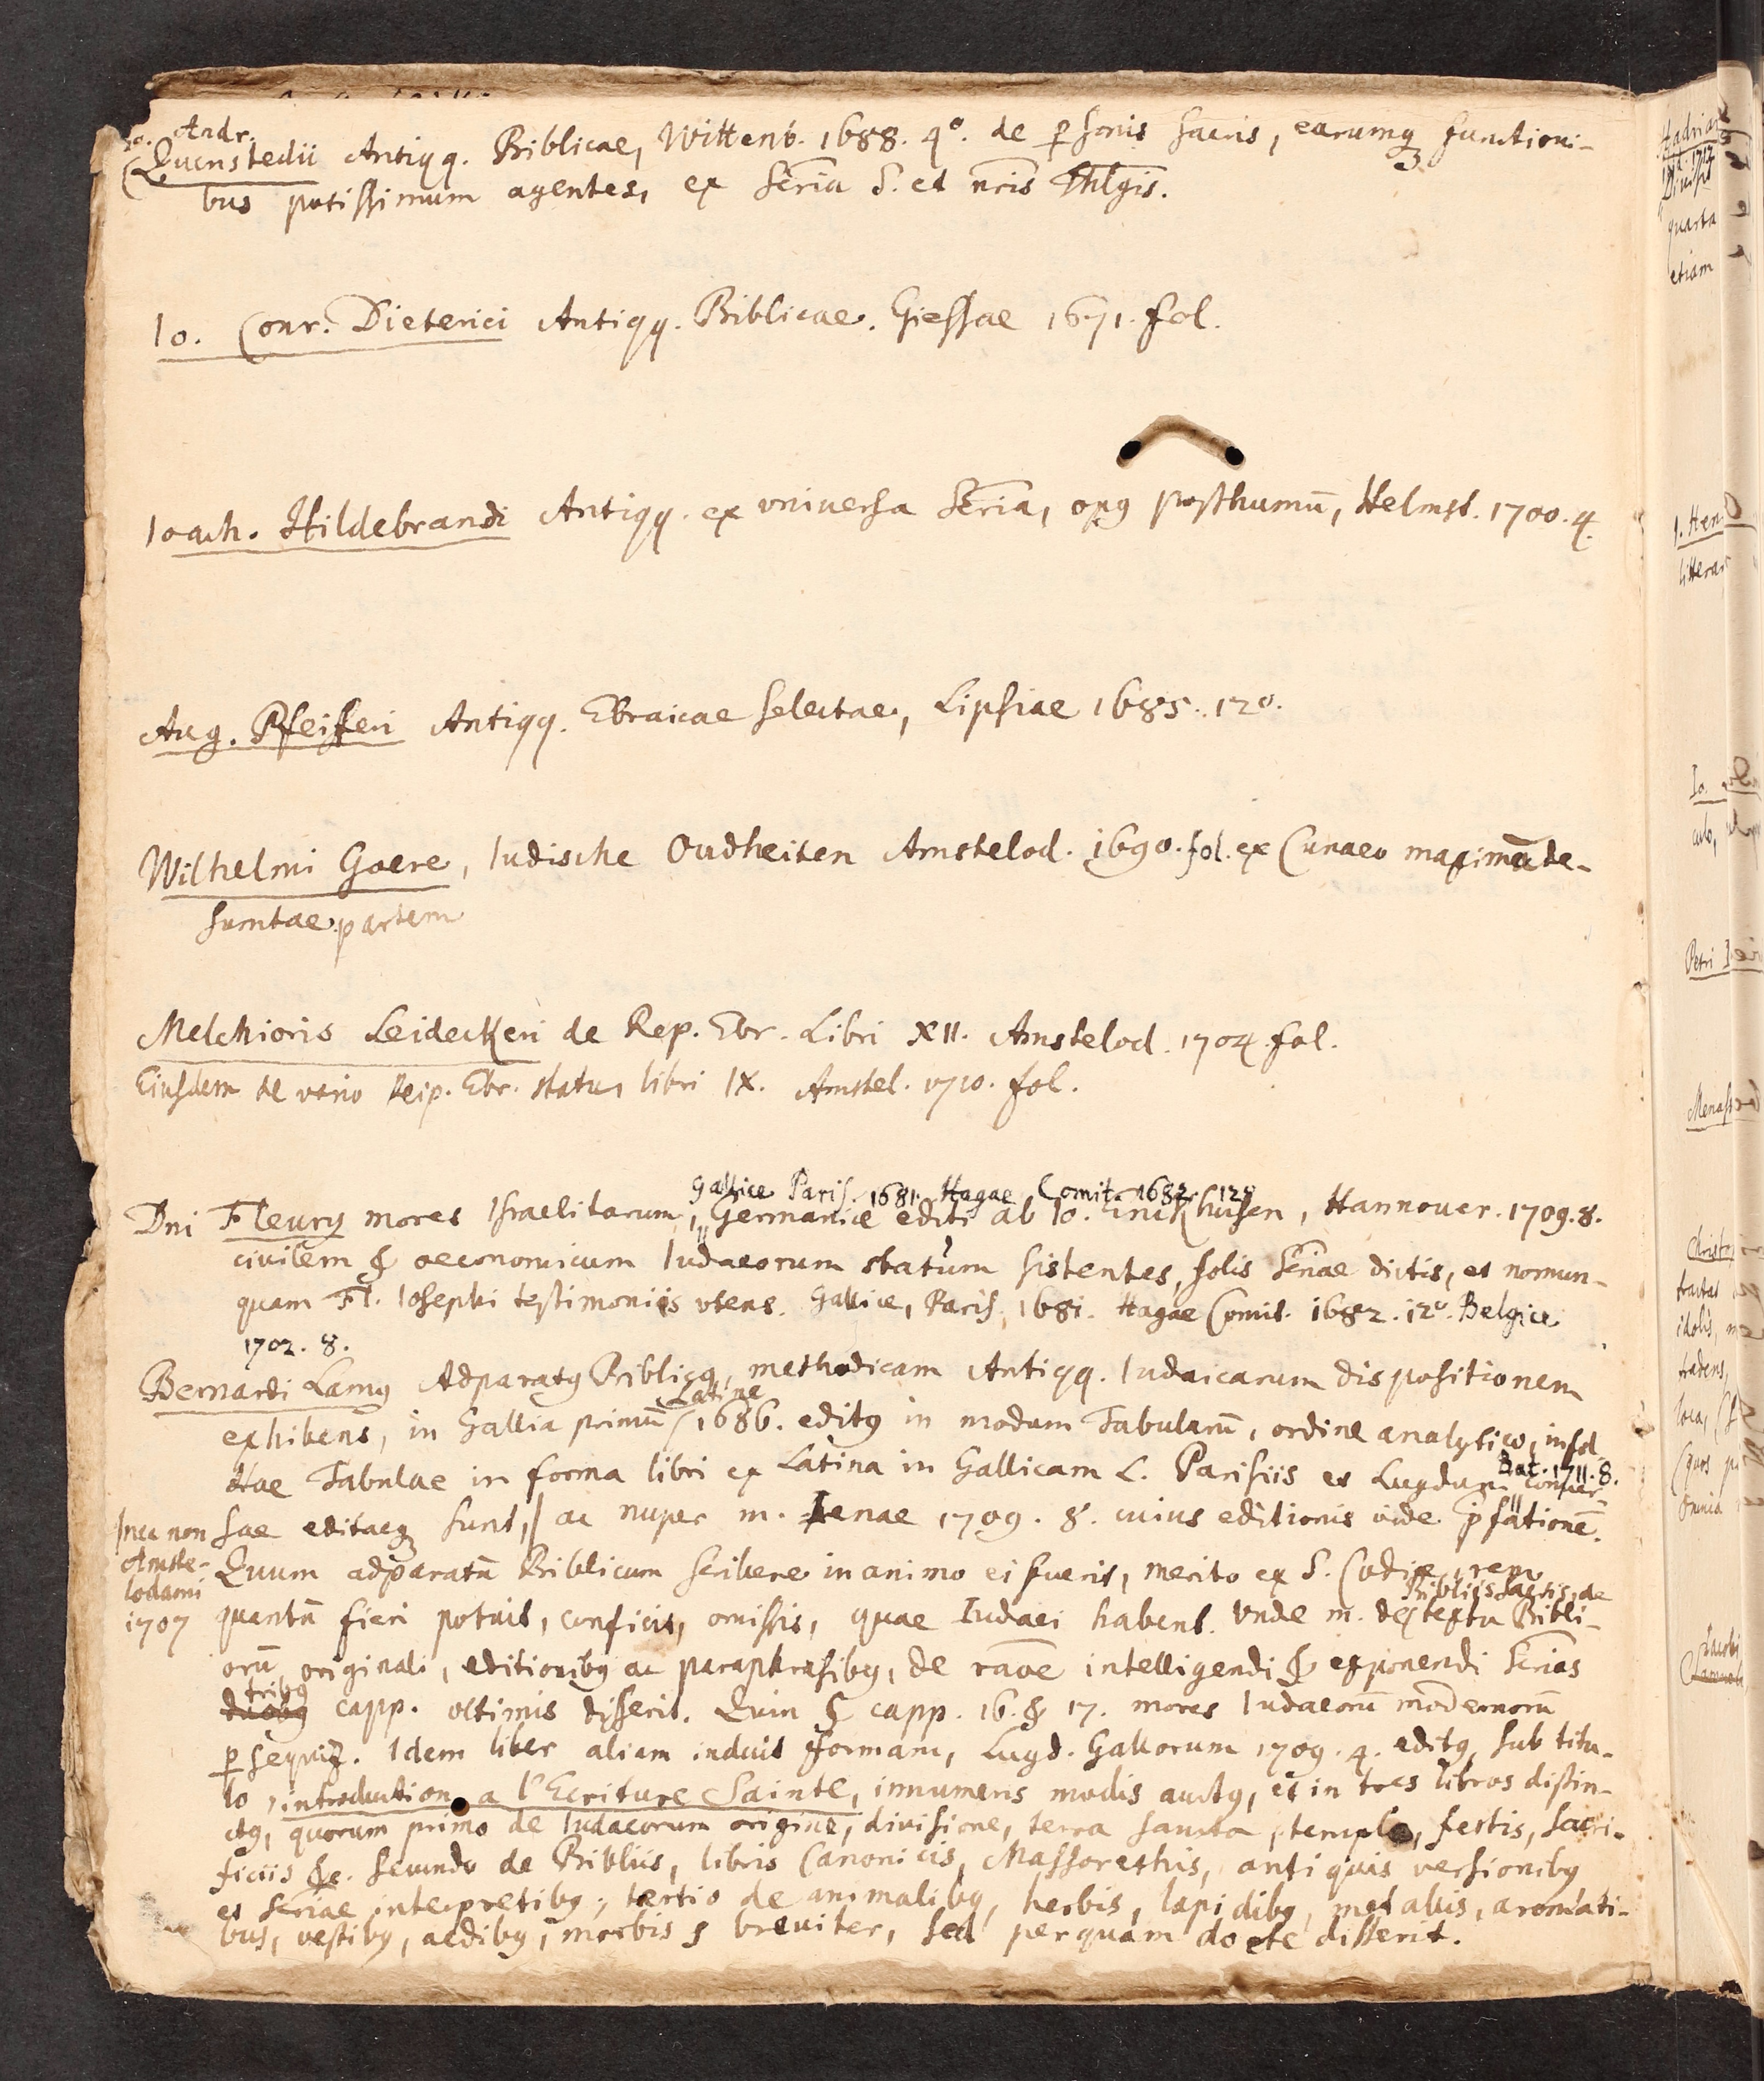 Io. Andr.
Quenstedii Antiqq. Biblicae, Wittenb. 1688. 4°. de p̱sonis sacris, earumq́ functioni-
bus potissimum agentes, ex Scria S. et nris Thlgis.
Io. Conr. Dieterici Antiqq. Biblicae. Giessae 1671. fol.
Ioach. Hildebrandi Antiqq. ex vniuersa Scria, opꝰ posthumū, Helmst. 1700. 4.
Aug. Pfeifferi Antiqq. Ebraicae selectae, Lipsiae 1685. 12°.
Wilhelmi Goere, Iudische Oudheiten Amstelod. 1690. fol. ex Cunaeo maximā de-
sumtae partem
Melchioris Leideckeri de Rep. Ebr. Libri XII. Amstelod. 1704. fol.
Eiusdem de vario Reip. Ebr. statu, libri IX. Amstel. 1710. fol.
Gallice Paris. 1681. Hagae Comit. 1682. 12°
Dni Fleury mores Israelitarum, Germanice editi ab Io. Enckhusen, Hannouer. 1709. 8.
ciuilem & oeconomicum Iudaeorum statum sistentes, solis Scriae dictis, et nonnun-
quam Fl. Iosephi testimoniis vtens. Gallice, Paris. 1681. Hagae Comit. 1682. 12°. Belgice
1702. 8.
Bernardi Lamy Adparatꝰ Biblicꝰ, methodicam Antiqq. Iudaicarum dispositionem
exhibens, in Gallia primū Latine 1686. editꝰ in modum Tabularū, ordine analytico, in fol.
Hae Tabulae in forma libri ex Latina in Gallicam L. Parisiis et Lugduni Bat. 1711. 8. conuer-
sae editaeq́ sunt, ac nuper m. Ienae 1709. 8. cuius editionis vide p̄fationē.
Inec non
Amste-
lodami
1707
Quum adparatū Biblicum scribere in animo ei fuerit, merito ex S. Codice,
quantū fieri potuit, conficit, omissis, quae Iudaei habent. Vnde m. de Bibliis sacris, de textu Bibli-
orū originali, editionibꝰ ac paraphrasibꝰ, de raōe intelligendi & exponendi Scrias
tribꝰ duobꝰ capp. vltimis disserit. Quin & capp. 16. & 17. mores Iudaeorū modernorū
p̱sequitꝛ. Idem liber aliam induit formam, Lugd. Gallorum 1709. 4. editꝰ, sub titu-
lo, introduction a l'Ecriture Sainte, innumeris modis auctꝰ, et in tres libros distin-
ctꝰ, quorum primo de Iudaeorum origine, diuisione, terra sancta, templo, festis, sacri-
ficiis &c. secundo de Bibliis, libris Canonicis, Massorethis, antiquis versionibꝰ
et Scriae interpretibꝰ; tertio de animalibꝰ, herbis, lapidibꝰ, metallis, aromati-
bus, vestibꝰ, aedibꝰ, morbis & breuiter, sed perquam docte disserit.